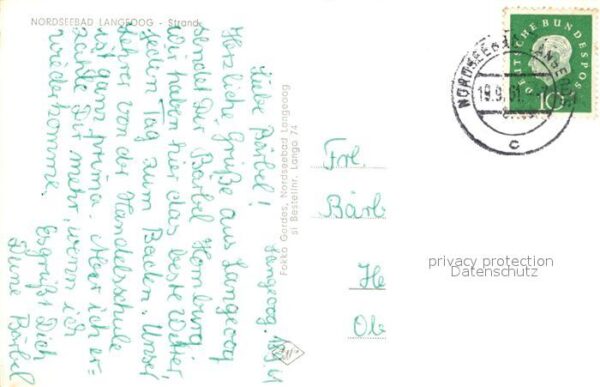 NORDSEEBAD LANGEOOG - Strand
Langeoog. 18.9.61
Liebe Bärbel!
Herzliche Grüße aus Langeoog
sendet Dir Bärbel Homburg.
Wir haben hier das beste Wetter
jeden Tag zum Baden. Unser
Lehrer von der Handelsschule
ist ganz prima. Aber ich er-
zähle Dir mehr, wenn ich
wiederkomme.
Es grüßt Dich
Deine Bärbel
Fokko Gerdes, Nordseebad Langeoog
si Bestellnr. Lango 74
DEUTSCHE BUNDESPOST
10
NORDSEEBAD LANGEOOG
19.9.61
c
Frl.
Bärb
He
Ob
privacy protection
Datenschutz